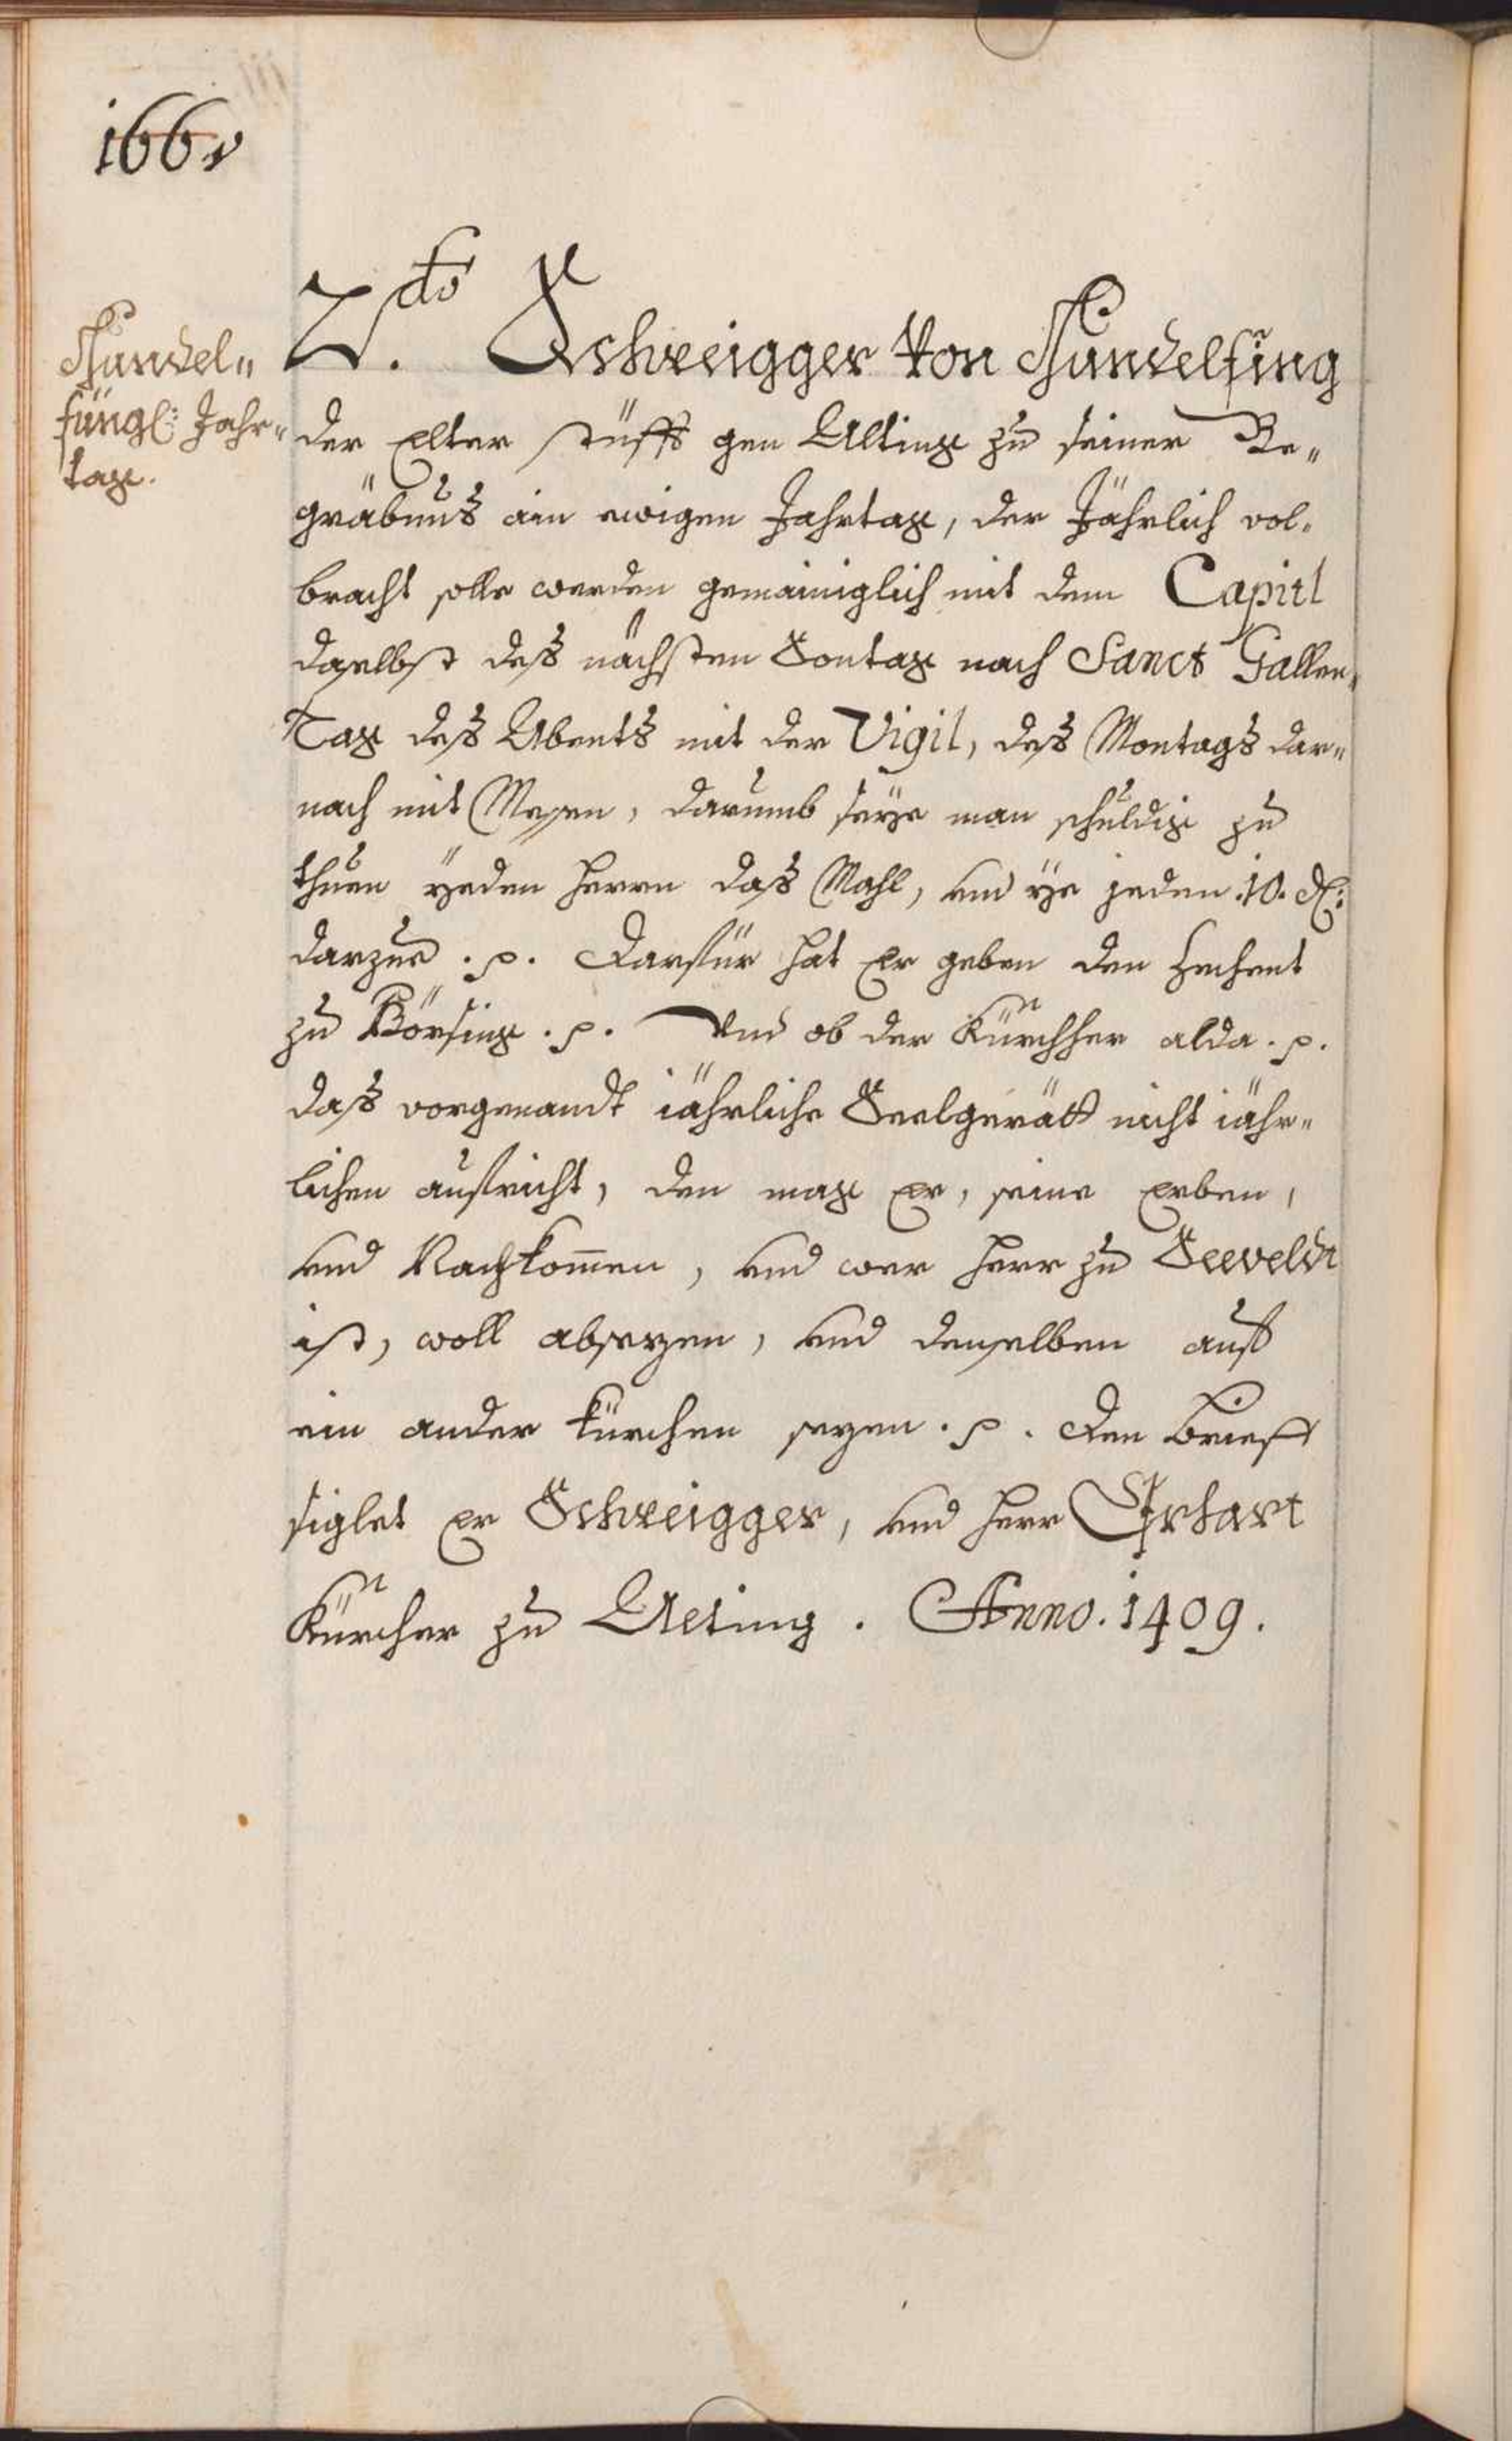 166v
Gundel„
füngl: Jahr„
tag.
2.do Schweigger von Gundelfing
der Elter stüfft gen Alting zu seiner Be„
gräbnus ain ewigen Jahrtag, der Jährlich vol„
bracht solle werden gemainiglich mit dem Capitl
daselbst deß nächsten Sontag nach Sanct Gallen„
Tag deß Abents mit der Vigil, deß Montags dar„
nach mit Messen, darumb seye man schuldig zu
thuen yeden Herrn daß Mahl, und ye jeden .10. d:
darzue .p. Darfür hat Er geben den Zechent
zu Börfing .p. Und ob der Kürchherr alda .p.
daß vorgenandt jährliche Seelgerätt nicht jähr„
lichen außricht, den mag Er, seine Erben,
und Nachkommen, und wer Herr zu Seeveldt
ist, woll absezen, und denselben auff
ein ander kürchen sezen .p. Den Brieff
siglet Er Schweigger, und Herr Erhart
Kürcher zu Alting. Anno. 1409.